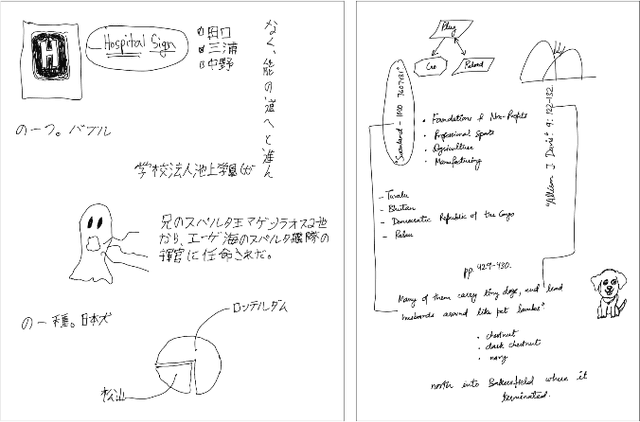 H
Hospital Sign
田口
三浦
中野
なく、能の道へと進ん
の一つ。バブル
学校法人池上学園が
兄のスペルタ王マゲシラオス2世
から、エーゲ海のスペルタ艦隊の
揮官に任命された。
の一種。日本犬
ロッテルダム
松山
Plug
Ceo
Poland
"Swissland - ISSO 7607431"
• Foundations & Non-Profits
• Professional Sports
• Agriculture
• Manufacturing
"Allison J. Davis". 9: 122-132.
- Tuvalu
- Bhutan
- Democratic Republic of the Congo
- Palau
pp. 429-430.
Many of them carry tiny dogs, and lead
husbands around like pet lambs"
• chestnut
• dark chestnut
• navy
north into Bakersfield where it
terminated.